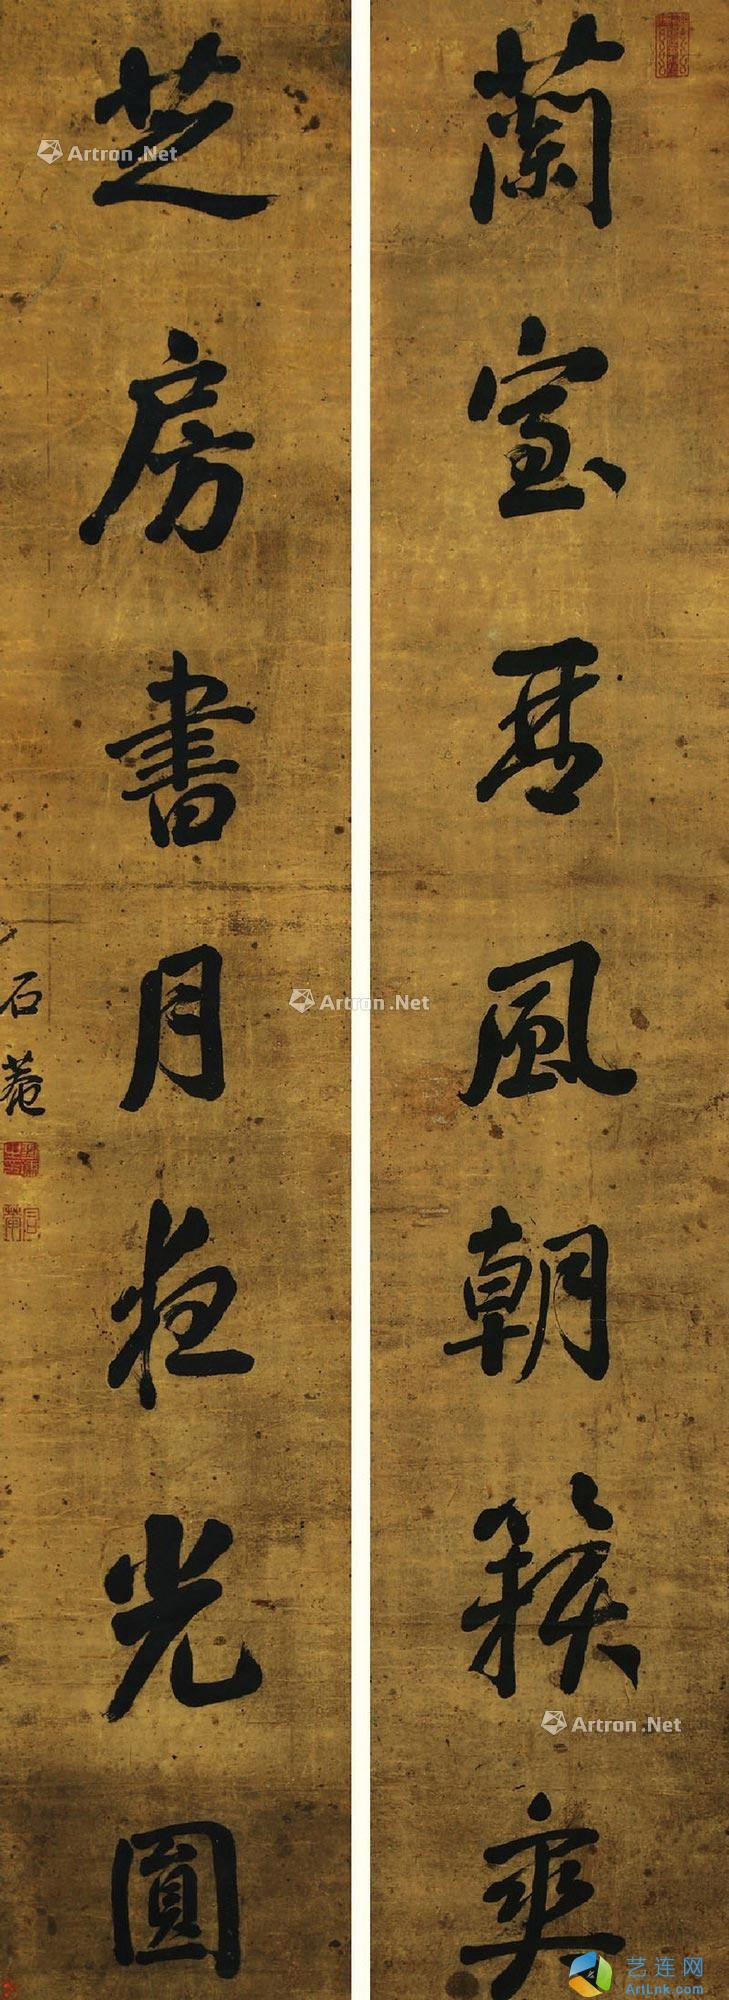 蘭室琴風朝籟爽
芝房書月夜光圓
石菴
Artron.Net
Artron.Net
Artron.Net
艺连网
ArtLnk.com